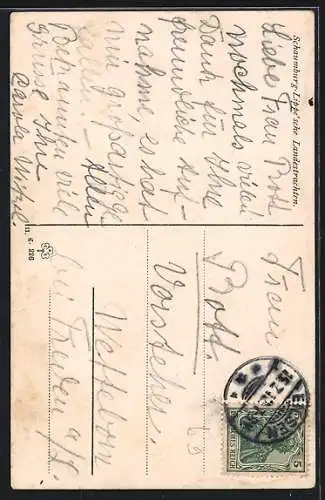 Schaumburg-Lippe'sche Landestrachten.
Liebe Frau Rott
nochmals vielen
Dank für Ihre
freundliche Auf-
nahme, es hat
mir großartig
gefallen. Allen
Bekannten viele
Grüsse Ihre
III. 6. 226
Frau
Rott.
Vorsteher
bei Freden a/L.
DEUTSCHES REICH
5